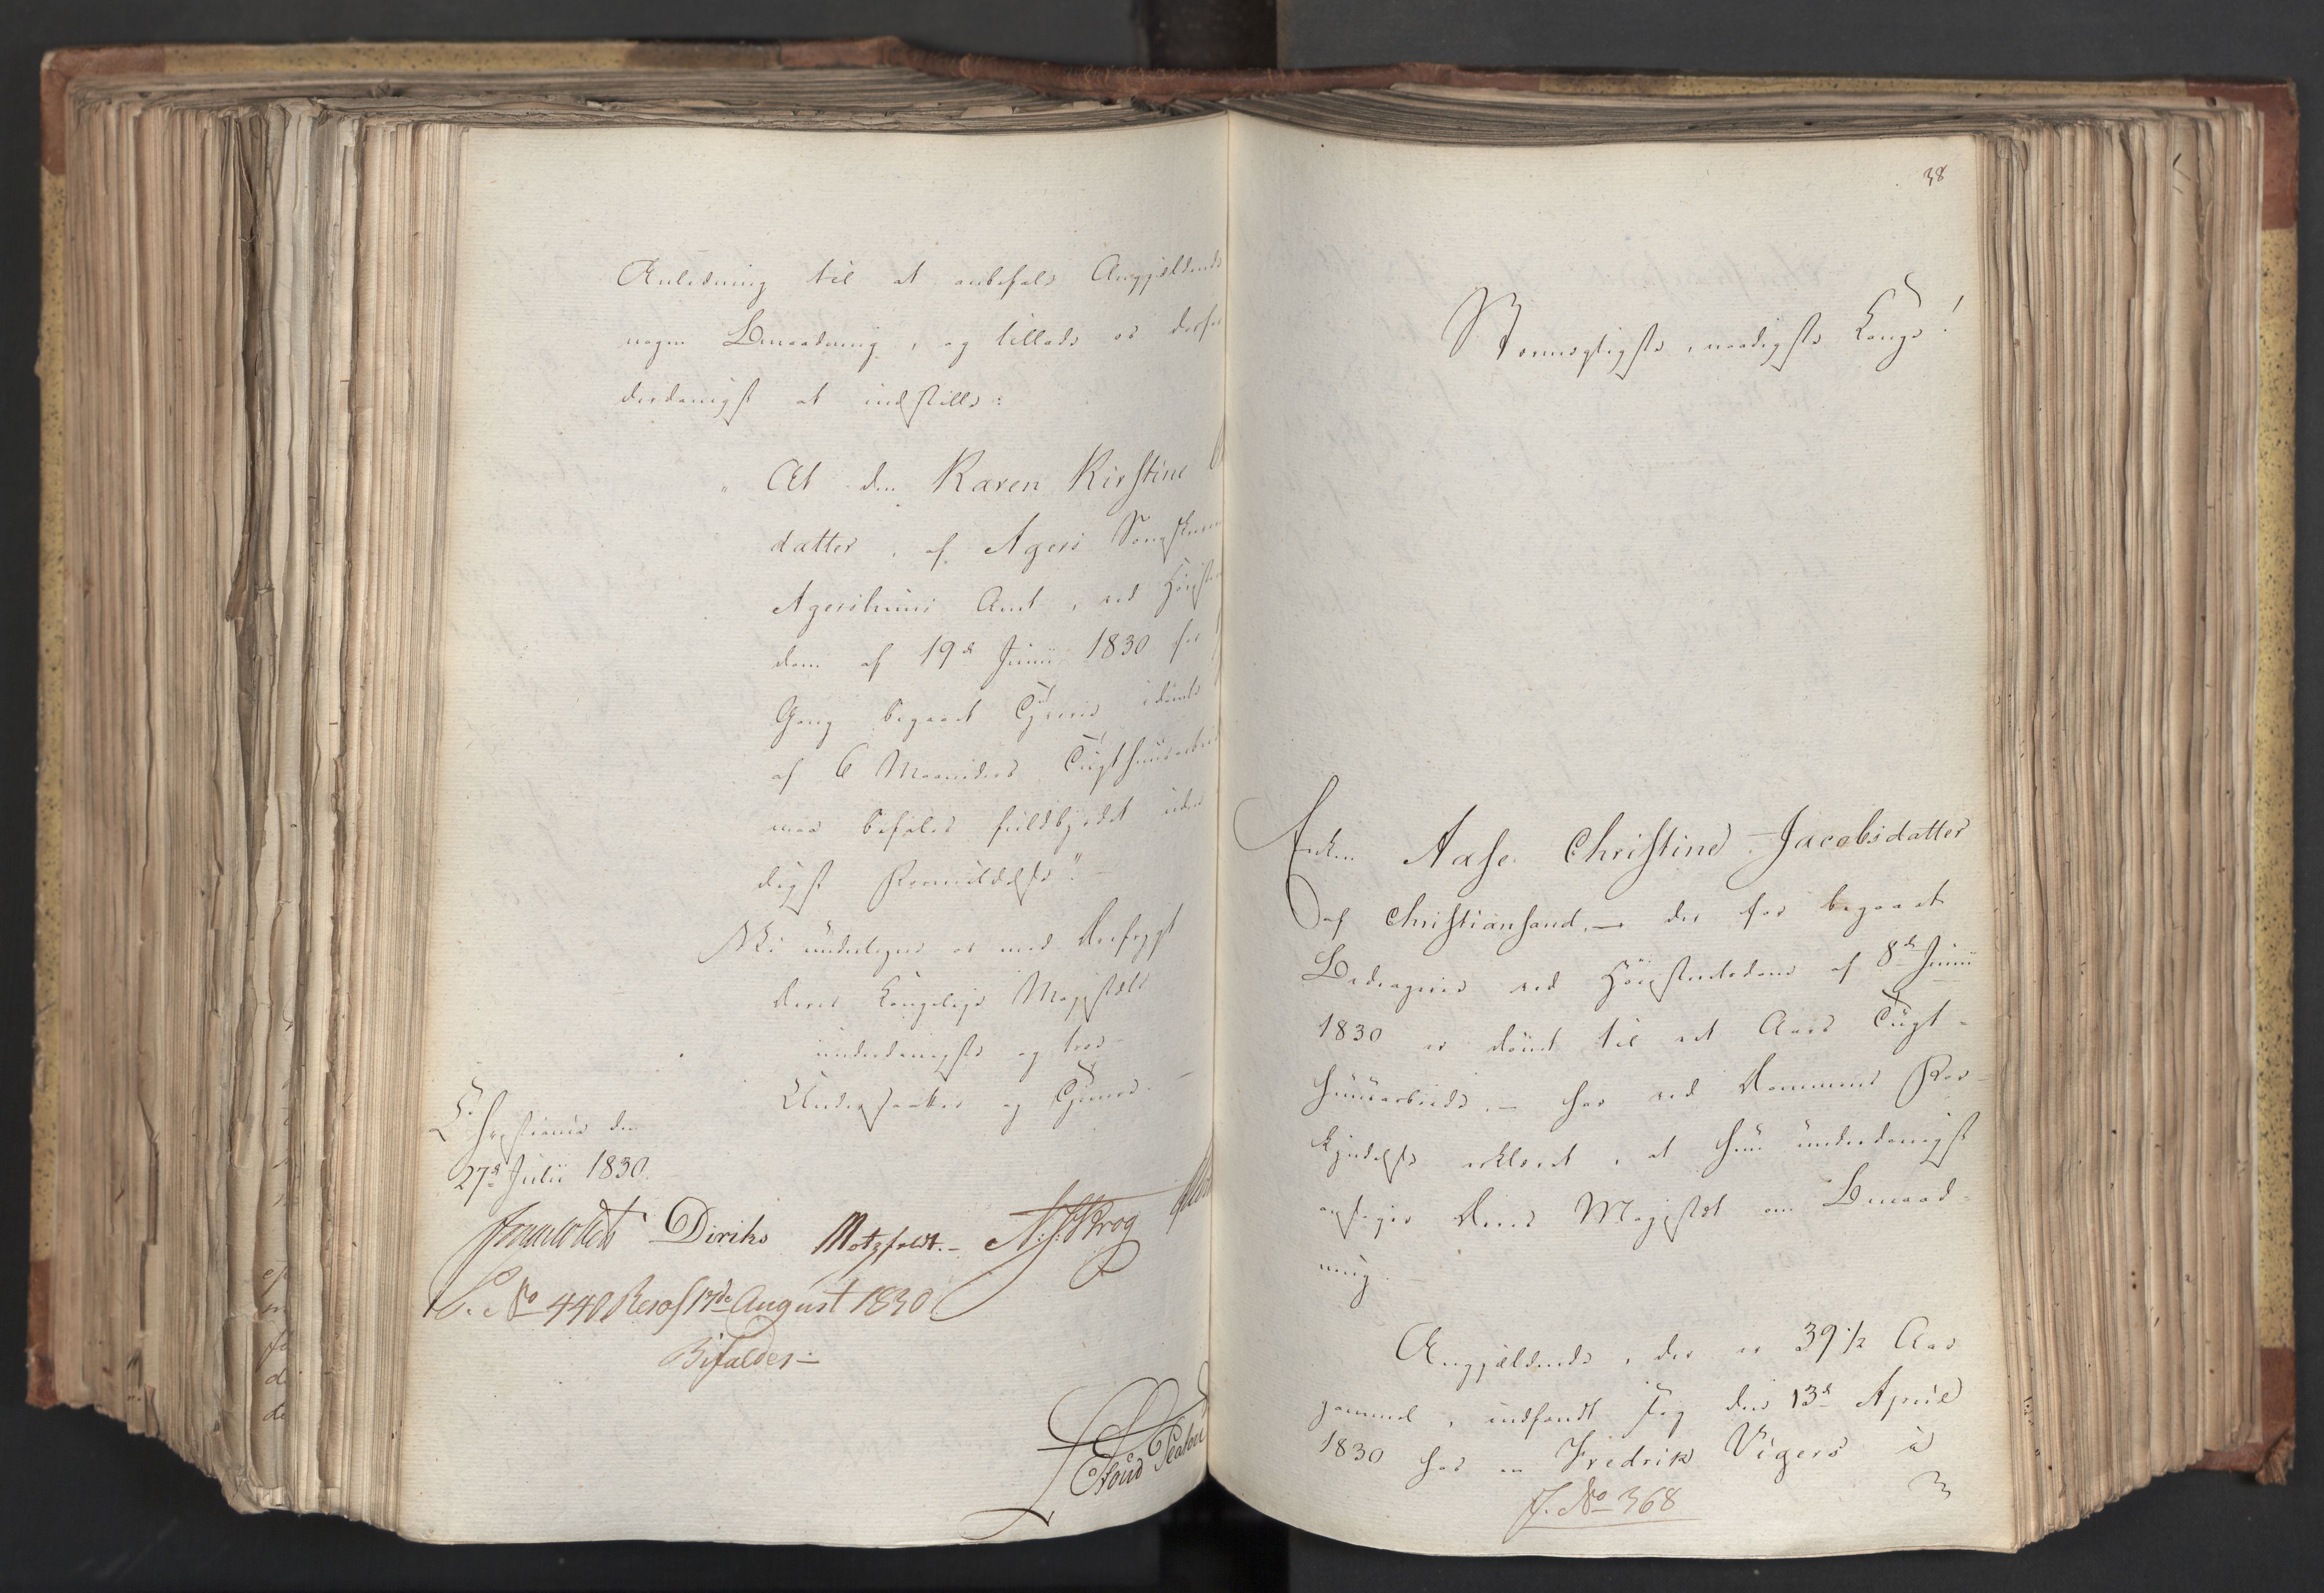 Anledning til at anbefale Angjeldende
nogen Benaadning, og tillade os derfor
derdanigst at indstille:
"At den Karen Kirstine
datter, af Agers Sognekald
Agershuus Amt, ved Høieste
dom af 19de Junii 1830 for
Gang begaaet Tyverie idømte
af 6 Maaneders Tugthuusarbeide
maa befales fuldbyrdet uden
digst Formildelse." —
Vi undertegne os med Ærefrygt
Deres Kongelige Majestæts
underdanigste og troe-
Undersaatter og Tjenere. —
Christiania den
27de Julii 1830.
Diriks Motzfeldt. — Krog
No 440 Res. af 17de August 1830
Bifaldes —
38
Stormægtigste, naadigste Konge!
Enken Aase Christine Jacobsdatter
af Christiansand, — der for begaaet
Bedragerie ved Høiesteretsdom af 8de Junii
1830 er dømt til et Aars Tugt-
huusarbeide, — har ved Dommens For-
kyndelse erklæret, at hun underdanigst
ansøger Deres Majestæt om Benaad-
ning.
Angjeldende, der er 39 1/2 Aar
gammel, indfandt sig den 13de April
1830 hos en Fredrik Vigers i
J. No 368